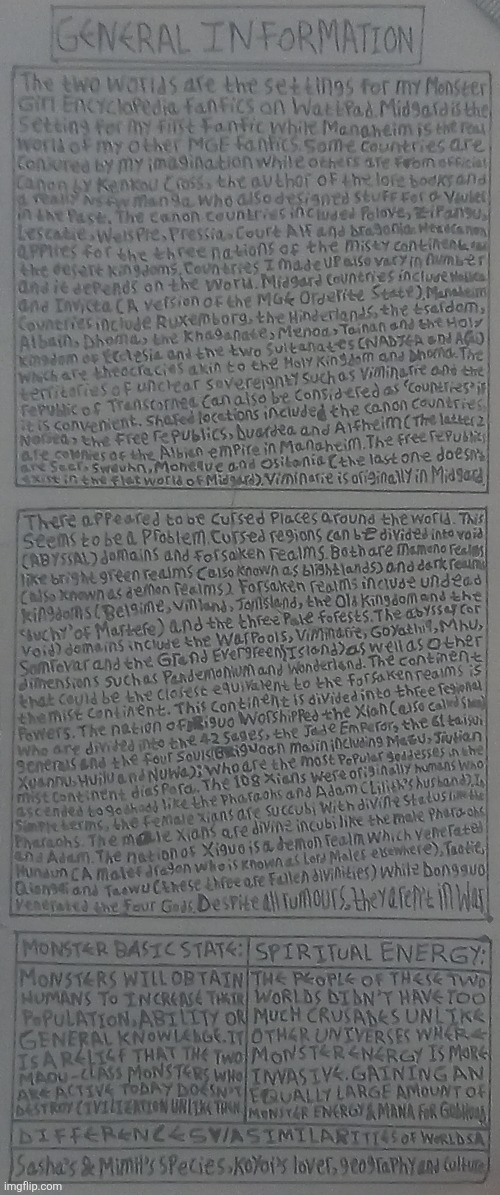 GENERAL INFORMATION
The two worlds are the settings for my Monster
Girl Encyclopedia fanfics on WattPad. Midgard is the
setting for my first fanfic while Manaheim is the real
world of my other MGE fanfics. Some countries are
conjured by my imagination while others are from official
canon by Kenkou Cross, the author of the lore books and
a really NSFW manga who also designed stuff for a
in the past. The canon countries included Polove, Zipangu,
Lescatie, Welspie, Pressia, Court Alf and Dragonia. Headcanon
applies for the three nations of the misty continent and
the desert kingdoms. Countries I made up also vary in number
and it depends on the world. Midgard countries include
and Invicta (A version of the MGE Orderite State). Manaheim
countries include Ruxemborg, the Hinderlands, the tsardom,
Albain, Dhoma, the Khaganate, Menoa, Tainan and the Holy
Kingdom of Ecclesia and the two Sultanates
which are theocracies akin to the Holy Kingdom and Dhoma. The
territories of unclear sovereignty such as Viminarie and the
republic of Transcornea can also be considered as "countries" if
it is convenient. Shared locations included the canon countries,
the Free republics, Duardea and Alfheim (The latter 2
are colonies of the Albian empire in Manaheim. The free republics
are Seer, Sweuhn, Moneque and Ositonia (the last one doesn't
exist in the flat world of Midgard). Viminarie is originally in Midgard
There appeared to be cursed places around the world. This
seems to be a problem. Cursed regions can be divided into void
(ABYSSAL) domains and Forsaken realms. Both are Mamono realms
like bright green realms (also known as blightlands) and dark realms
(also known as demon realms). Forsaken realms include undead
kingdoms (Belgime, Vinland, Tomisland, the Old Kingdom and the
"Duchy" of Martefe) and the three Pale forests. The abyssal (or
void) domains include the Warpools, Viminarie, Goyathi9, Mhu,
Somfovar and the Grand Evergreen Island) as well as other
dimensions such as Pandemonium and Wonderland. The continent
that could be the closest equivalent to the forsaken realms is
the mist continent. This continent is divided into three regional
powers. The nation of Beiguo worshipped the Xian (also called
who are divided into the 42 Sages, the Jade Emperor, the 61 taisui
generals and the four souls (Beiguoan maoin including Magu, Jiutian
Xuannu, Huilu and Nuwa); who are the most popular goddesses in the
mist continent diaspora. The 108 Xians were originally humans who
ascended to godhood like the Pharaohs and Adam (Lilith's husband). In
simple terms, the female Xians are succubi with divine status like the
Pharaohs. The male Xians are divine incubi like the male Pharaohs
and Adam. The nation of Xiguo is a demon realm which venerated
Hundun (A male dragon who is known as Lord Males elsewhere), Taotie,
Qiongqi and Taowu (these three are fallen divinities) while Dongguo
venerated the Four Gods. Despite all rumours, they aren't in war
MONSTER BASIC STATE:
MONSTERS WILL OBTAIN
HUMANS TO INCREASE THEIR
POPULATION, ABILITY OR
GENERAL KNOWLEDGE. IT
IS A RELIEF THAT THE TWO
MAOU-CLASS MONSTERS WHO
ARE ACTIVE TODAY DOESN'T
DESTROY CIVILIZATION UNLIKE THEN
SPIRITUAL ENERGY:
THE PEOPLE OF THESE TWO
WORLDS DIDN'T HAVE TOO
MUCH CRUSADES UNLIKE
OTHER UNIVERSES WHERE
MONSTER ENERGY IS MORE
INVASIVE. GAINING AN
EQUALLY LARGE AMOUNT OF
MONSTER ENERGY & MANA FOR GODHOOD
DIFFERENCES V/A SIMILARITIES OF WORLDS A
Sasha's & Mimil's species, Koyoi's lover, geography and culture
imgflip.com